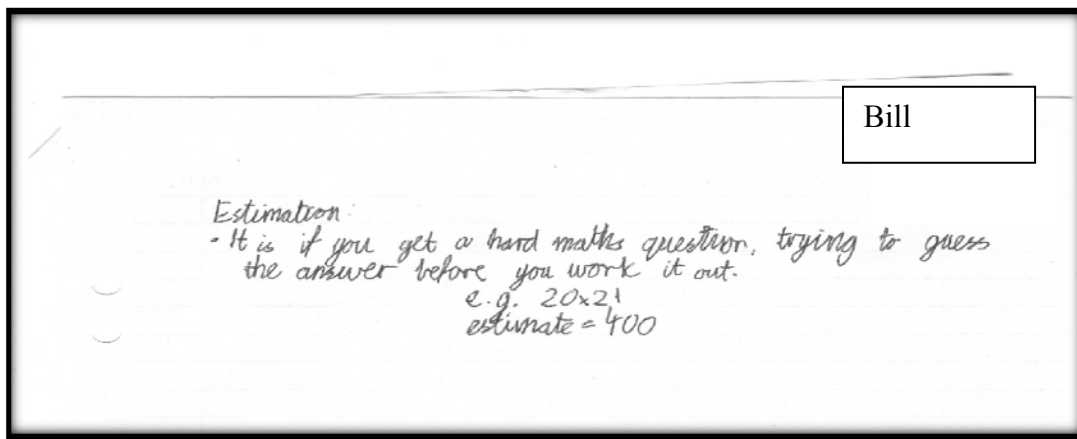 Bill
Estimation:
• It is if you get a hard maths question, trying to guess
the answer before you work it out.
e.g. 20x21
estimate = 400